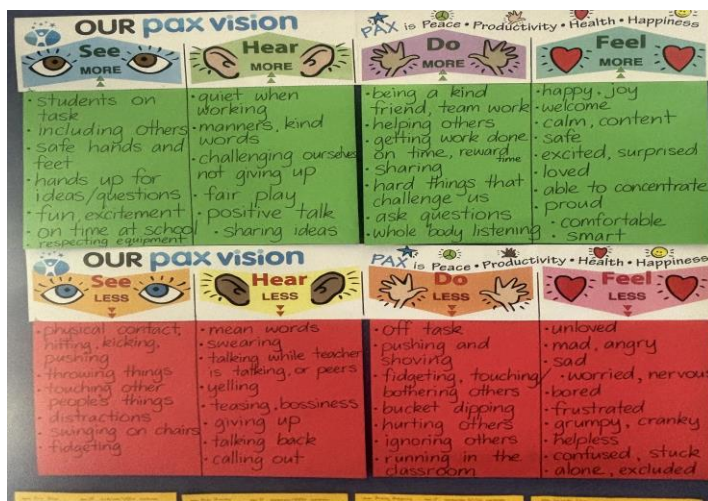 OUR pax vision
PAX is Peace • Productivity • Health • Happiness
See
MORE
Hear
MORE
Do
MORE
Feel
MORE
• students on
task
• including others
• safe hands and
feet
• hands up for
ideas/questions
• fun, excitement
• on time at school
respecting equipment
• quiet when
working
• manners, kind
words
• challenging ourselves
not giving up
• fair play
• positive talk
• sharing ideas
• being a kind
friend, team work
• helping others
• getting work done
on time, reward time
• sharing
• hard things that
challenge us
• ask questions
• whole body listening
• happy • joy
• welcome
• calm, content
• safe
• excited, surprised
• loved
• able to concentrate
• proud
• comfortable
• smart
OUR pax vision
PAX is Peace • Productivity • Health • Happiness
See
LESS
Hear
LESS
Do
LESS
Feel
LESS
• physical contact,
hitting, kicking,
pushing
• throwing things
• touching other
people's things
• distractions
• swinging on chairs
• fidgeting
• mean words
• swearing
• talking while teacher
is talking, or peers
• yelling
• teasing, bossiness
• giving up
• talking back
• calling out
• off task
• pushing and
shoving
• fidgeting, touching/
bothering others
• bucket dipping
• hurting others
• ignoring others
• running in the
classroom
• unloved
• mad, angry
• sad
• worried, nervous
• bored
• frustrated
• grumpy, cranky
• helpless
• confused, stuck
• alone, excluded